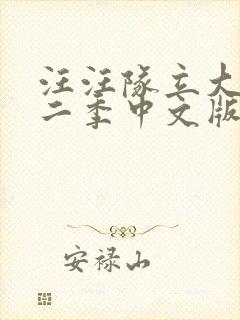 汪汪队立大
二季中文版
安禄山